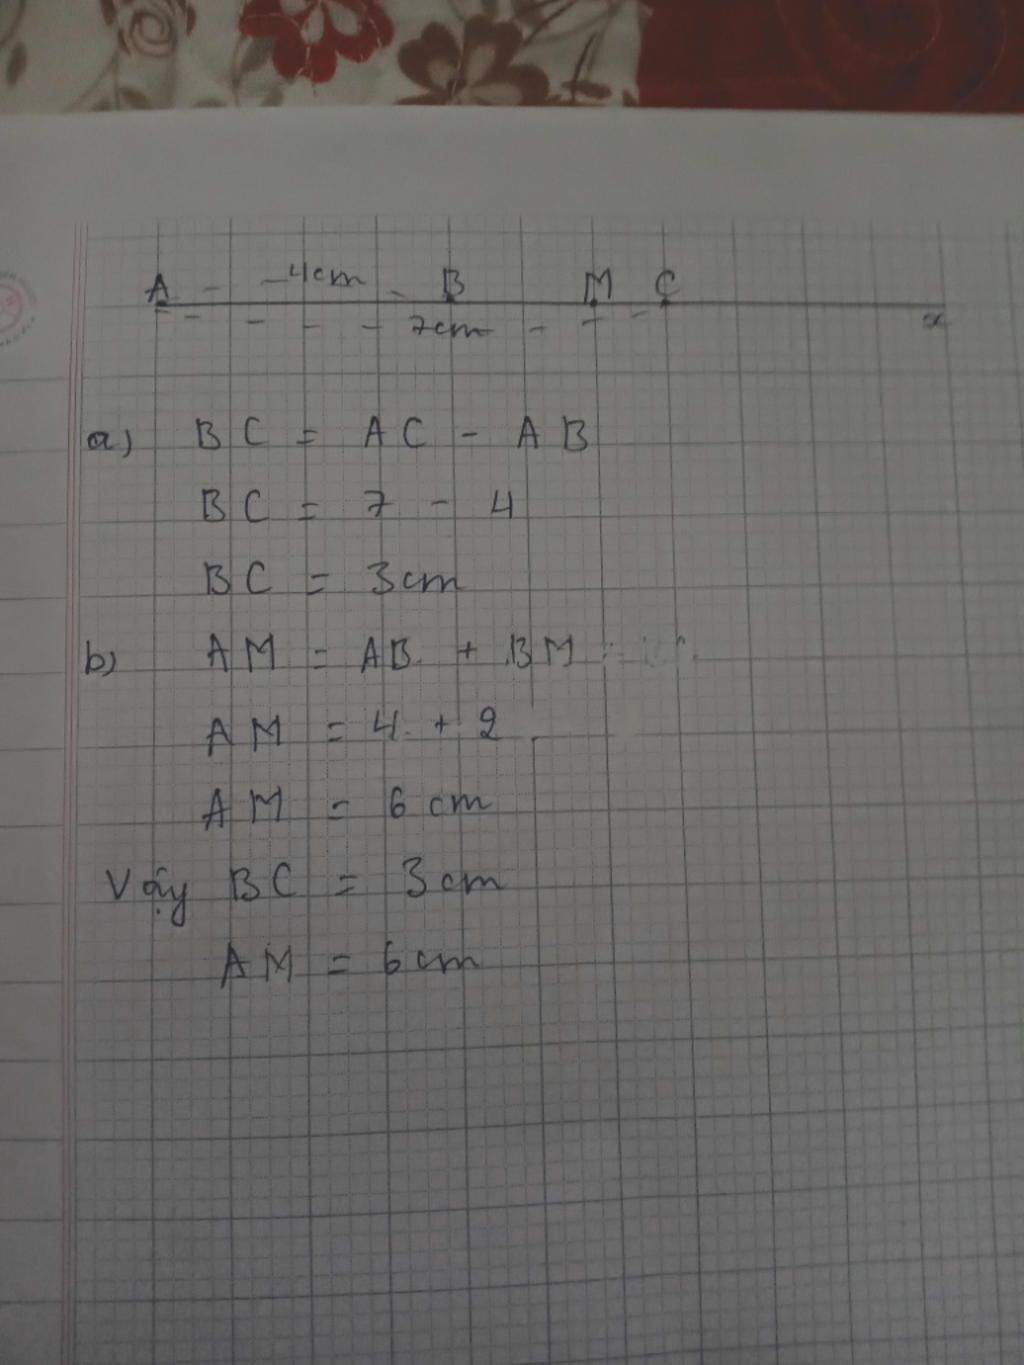 A - - 4cm - B M C
- - - - 7cm - - - x
a) BC = AC - AB
BC = 7 - 4
BC = 3cm
b) AM = AB + BM
AM = 4 + 2
AM = 6 cm
Vậy BC = 3cm
AM = 6cm